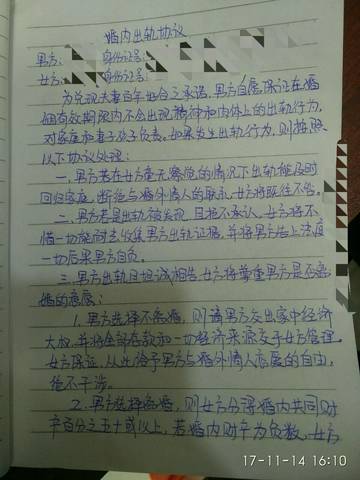 婚内出轨协议
男方: 身份证号:
女方: 身份证号:
为兑现夫妻百年好合之承诺,男方自愿保证在婚
姻有效期限内不会出现精神和肉体上的出轨行为,
对家庭和妻子孩子负责。如果发生出轨行为,则按照
以下协议处理:
一、男方若在女方毫无察觉的情况下出轨能及时
回归家庭,断绝与婚外情人的联系,女方将既往不咎。
二、男方若是出轨被发现,且抱不承认,女方将不
惜一切能耐去收集男方出轨证据,并将男方告上法庭
一切后果男方负。
三、男方出轨且坦诚相告,女方将尊重男方是否离
婚的意愿:
1.男方选择不离婚,则请男方交出家中经济
大权,并将全部存款和一切经济来源交于女方管理。
女方保证,从此给予男方与婚外情人意愿的自由,
绝不干涉。
2.男方选择离婚,则女方分得婚内共同财
产百分之五十或以上,若婚内财产为负数,女方
17-11-14 16:10